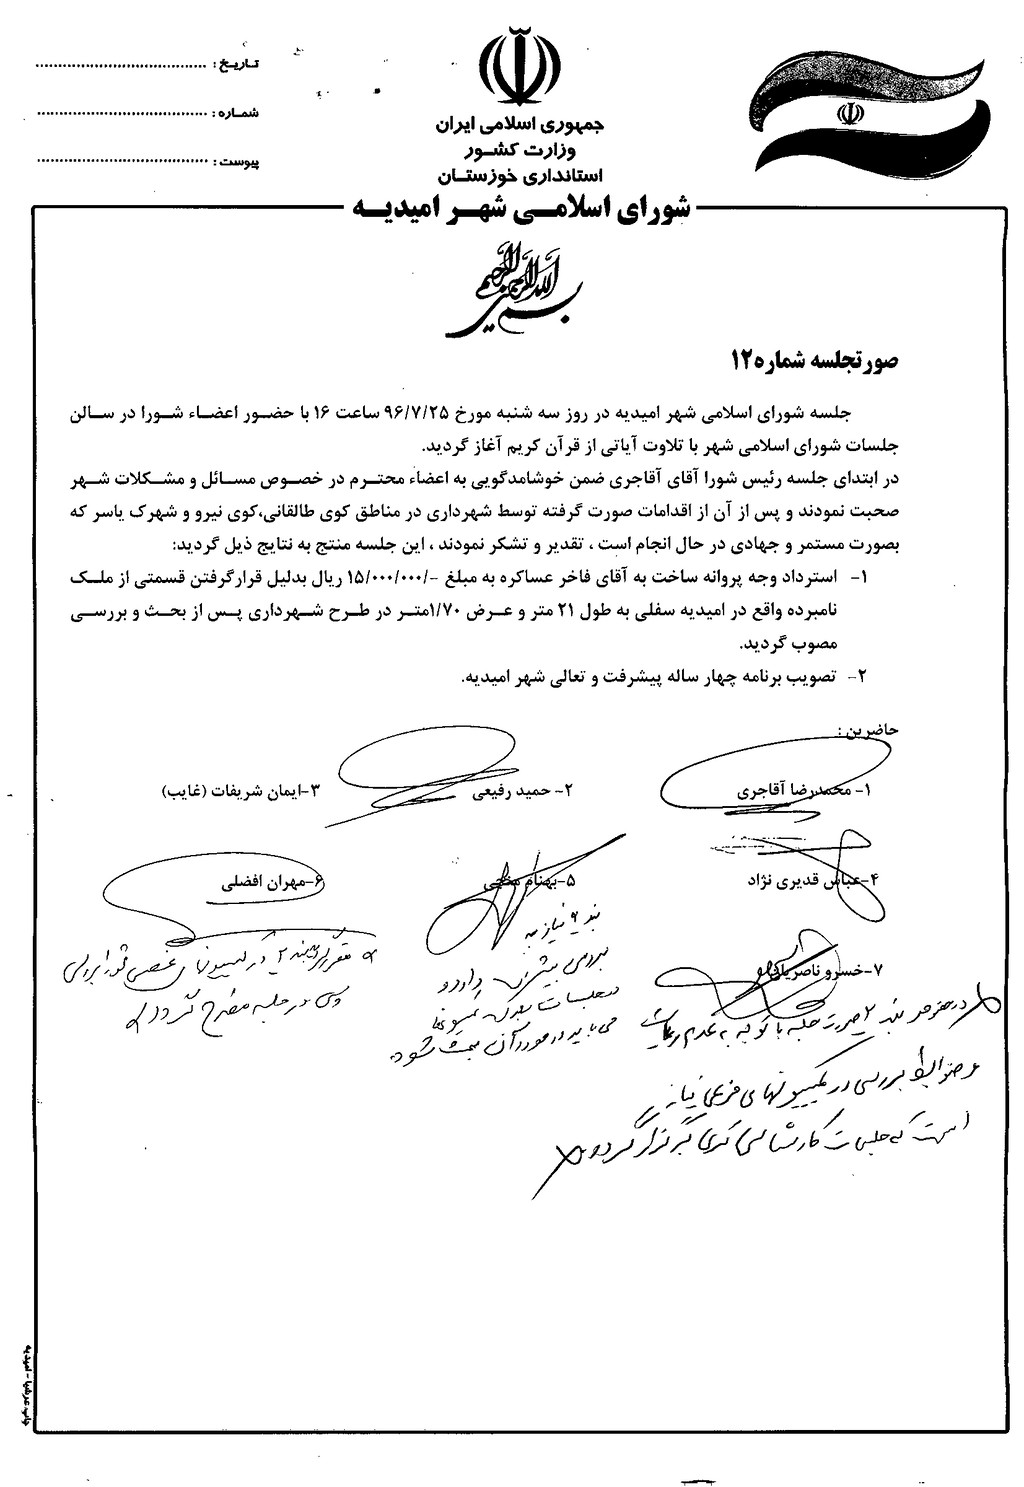 تاریخ : ........................................
شماره : ........................................
پیوست : ........................................
جمهوری اسلامی ایران
وزارت کشور
استانداری خوزستان
شورای اسلامی شهر امیدیه
بسم الله الرحمن الرحیم
صورتجلسه شماره۱۲
جلسه شورای اسلامی شهر امیدیه در روز سه شنبه مورخ ۹۶/۷/۲۵ ساعت ۱۶ با حضور اعضاء شورا در سالن
جلسات شورای اسلامی شهر با تلاوت آیاتی از قرآن کریم آغاز گردید.
در ابتدای جلسه رئیس شورا آقای آقاجری ضمن خوشامدگویی به اعضاء محترم در خصوص مسائل و مشکلات شهر
صحبت نمودند و پس از آن از اقدامات صورت گرفته توسط شهرداری در مناطق کوی طالقانی،کوی نیرو و شهرک یاسر که
بصورت مستمر و جهادی در حال انجام است ، تقدیر و تشکر نمودند ، این جلسه منتج به نتایج ذیل گردید:
۱- استرداد وجه پروانه ساخت به آقای فاخر عساکره به مبلغ -/۱۵/۰۰۰/۰۰۰ ریال بدلیل قرارگرفتن قسمتی از ملک
نامبرده واقع در امیدیه سفلی به طول ۲۱ متر و عرض ۱/۷۰متر در طرح شهرداری پس از بحث و بررسی
مصوب گردید.
۲- تصویب برنامه چهار ساله پیشرفت و تعالی شهر امیدیه.
حاضرین :
۱- محمدرضا آقاجری ۲- حمید رفیعی ۳-ایمان شریفات (غایب)
۴-عباس قدیری نژاد ۵-بهنام ۶-مهران افضلی
۷-خسرو ناصر
بند ۲ نیاز به
بررسی بیشتر دارد و
در جلسات
می باید در مورد آن بحث شود
بند ۲ در کمیسیونهای تخصصی شورا بررسی
در جلسه مطرح گردد
در خصوص بند ۲ صورت جلسه با توجه به عدم رعایت
ضوابط بررسی در کمیسیونهای فرعی نیاز
است که جلسات کارشناسی برگزار گردد
چاپ عرشیا - امیدیه